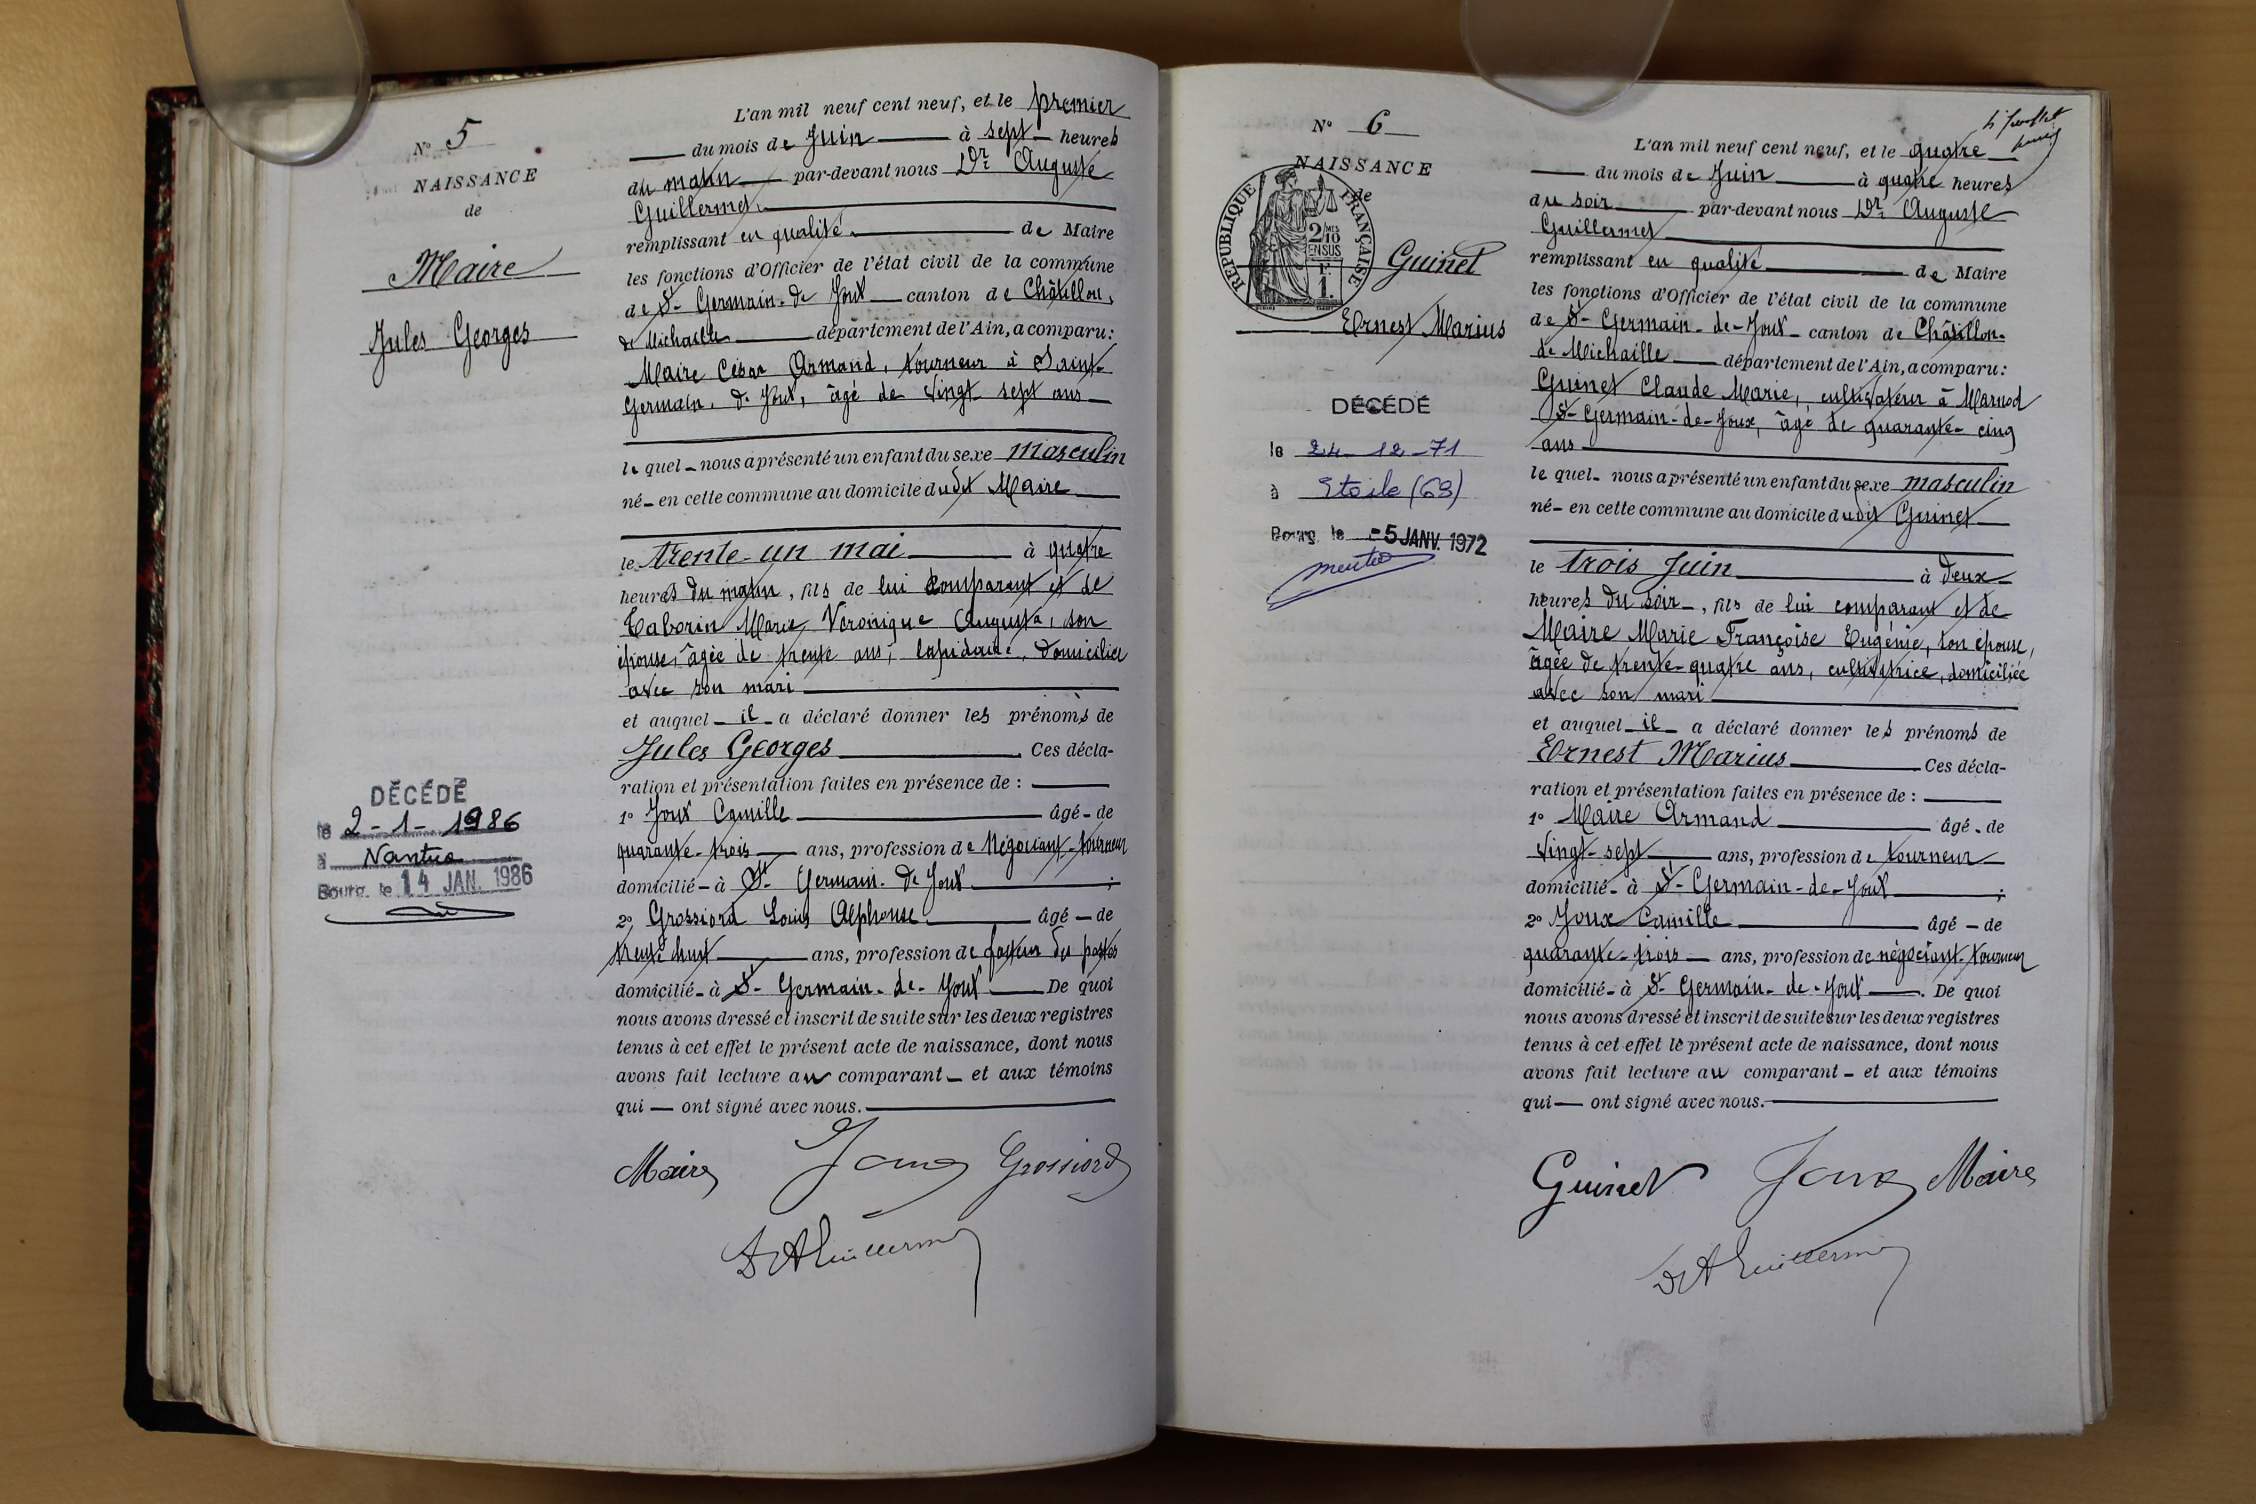 N° 5
NAISSANCE
de
Maire
Jules Georges
DÉCÉDÉ
le 2-1-1986
à Nantua
Bourg. le 14 JAN. 1986
L'an mil neuf cent neuf, et le premier
du mois de Juin à sept heures
du matin par-devant nous Dr Auguste
Guillermet
remplissant en qualité de Maire
les fonctions d'Officier de l'état civil de la commune
de St-Germain-de-Joux canton de Châtillon,
de Michaille département de l'Ain, a comparu:
Maire César Armand, tourneur à Saint-
Germain-de-Joux, âgé de vingt-sept ans
le quel - nous a présenté un enfant du sexe masculin
né - en cette commune au domicile dudit Maire
le trente-un mai à quatre
heures du matin, fils de lui comparant et de
Taborin Marie Véronique Augusta, son
épouse, âgée de trente ans, lapidaire, domiciliée
avec son mari
et auquel - il - a déclaré donner les prénoms de
Jules Georges. Ces décla-
ration et présentation faites en présence de :
1° Joux Camille âgé - de
quarante-trois ans, profession de Négociant-tourneur
domicilié - à St-Germain-de-Joux ;
2° Grossiord Louis Alphonse âgé - de
trente huit ans, profession de facteur des postes
domicilié - à St-Germain-de-Joux De quoi
nous avons dressé et inscrit de suite sur les deux registres
tenus à cet effet le présent acte de naissance, dont nous
avons fait lecture au comparant - et aux témoins
qui - ont signé avec nous.
Maire Joux Grossiord
Dr A Guillermet
N° 6
NAISSANCE
de
REPUBLIQUE FRANÇAISE
2/10
EN SUS
1
Guinet
Ernest Marius
DÉCÉDÉ
le 24-12-71
à Etoile (69)
Bourg. le -5 JANV. 1972
L'an mil neuf cent neuf, et le quatre
du mois de Juin à quatre heures
du soir par-devant nous Dr Auguste
Guillermet
remplissant en qualité de Maire
les fonctions d'Officier de l'état civil de la commune
de St-Germain-de-Joux - canton de Châtillon-
de Michaille département de l'Ain, a comparu:
Guinet Claude Marie, cultivateur à Marnod
St-Germain-de-Joux, âgé de quarante-cinq
ans
le quel - nous a présenté un enfant du sexe masculin
né - en cette commune au domicile dudit Guinet
le trois Juin à deux
heures du soir -, fils de lui comparant et de
Maire Marie Françoise Eugénie, son épouse,
âgée de trente-quatre ans, cultivatrice, domiciliée
avec son mari
et auquel il a déclaré donner les prénoms de
Ernest Marius Ces décla-
ration et présentation faites en présence de :
1° Maire Armand âgé - de
vingt-sept ans, profession de tourneur
domicilié - à St-Germain-de-Joux ;
2° Joux Camille âgé - de
quarante-trois ans, profession de négociant-tourneur
domicilié - à St-Germain-de-Joux. De quoi
nous avons dressé et inscrit de suite sur les deux registres
tenus à cet effet le présent acte de naissance, dont nous
avons fait lecture au comparant - et aux témoins
qui - ont signé avec nous.
Guinet Joux Maire
Dr A Guillermet